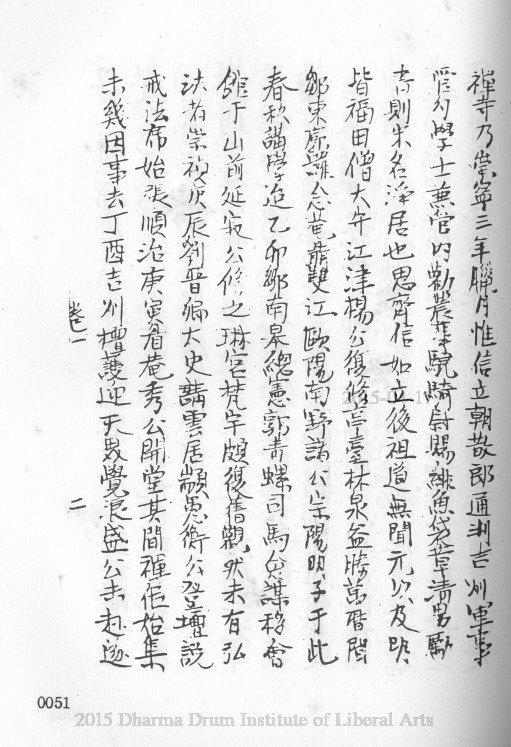 禪寺乃崇寧三年臘月惟信立朝散郎通判吉州軍事
管勾學士兼管內勸農事驍騎尉賜緋魚袋曾清男勵
書則宋名淨居也思齊信如立後祖道無聞元以及明
皆福田僧大午江津楊公復修草臺林泉益勝萬曆間
鄒東廓羅念菴聶雙江歐陽南野諸公宗陽明子于此
春秋講學迨乙卯鄒南皋總憲郭青螺司馬僉謀移會
館于山前延寂公修之琳宮梵宇頗復舊觀然未有弘
法者崇禎庚辰劉晉卿太史請雲居顓愚衡公登壇說
戒法席始張順治庚寅眉菴秀公開堂其間禪侶始集
未幾因事去丁酉吉州檀護迎天界覺浪盛公未赴遂
卷一
二
0051
2015 Dharma Drum Institute of Liberal Arts